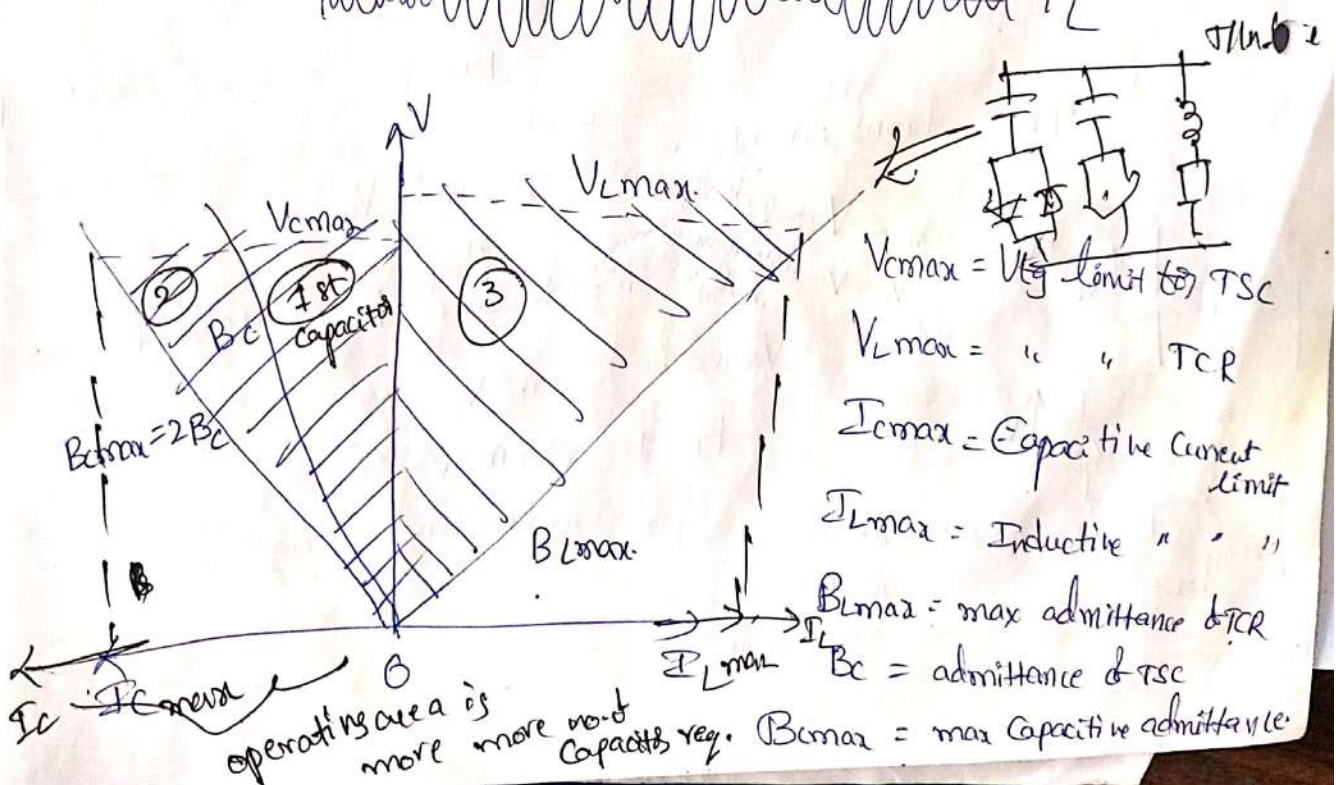 V
VLmax.
Vcmax
2
1st
capacitor
3
Bc
Bcmax=2Bc
BLmax.
Ic
Icmax
0
ILmax
IL
operating area is
more more no. of
Capacitor req.
Vcmax = Vtg limit for TSC
VLmax = " " TCR
Icmax = Capacitive Current
limit
ILmax = Inductive " " "
BLmax = max admittance of TCR
Bc = admittance of TSC
Bcmax = max Capacitive admittance.